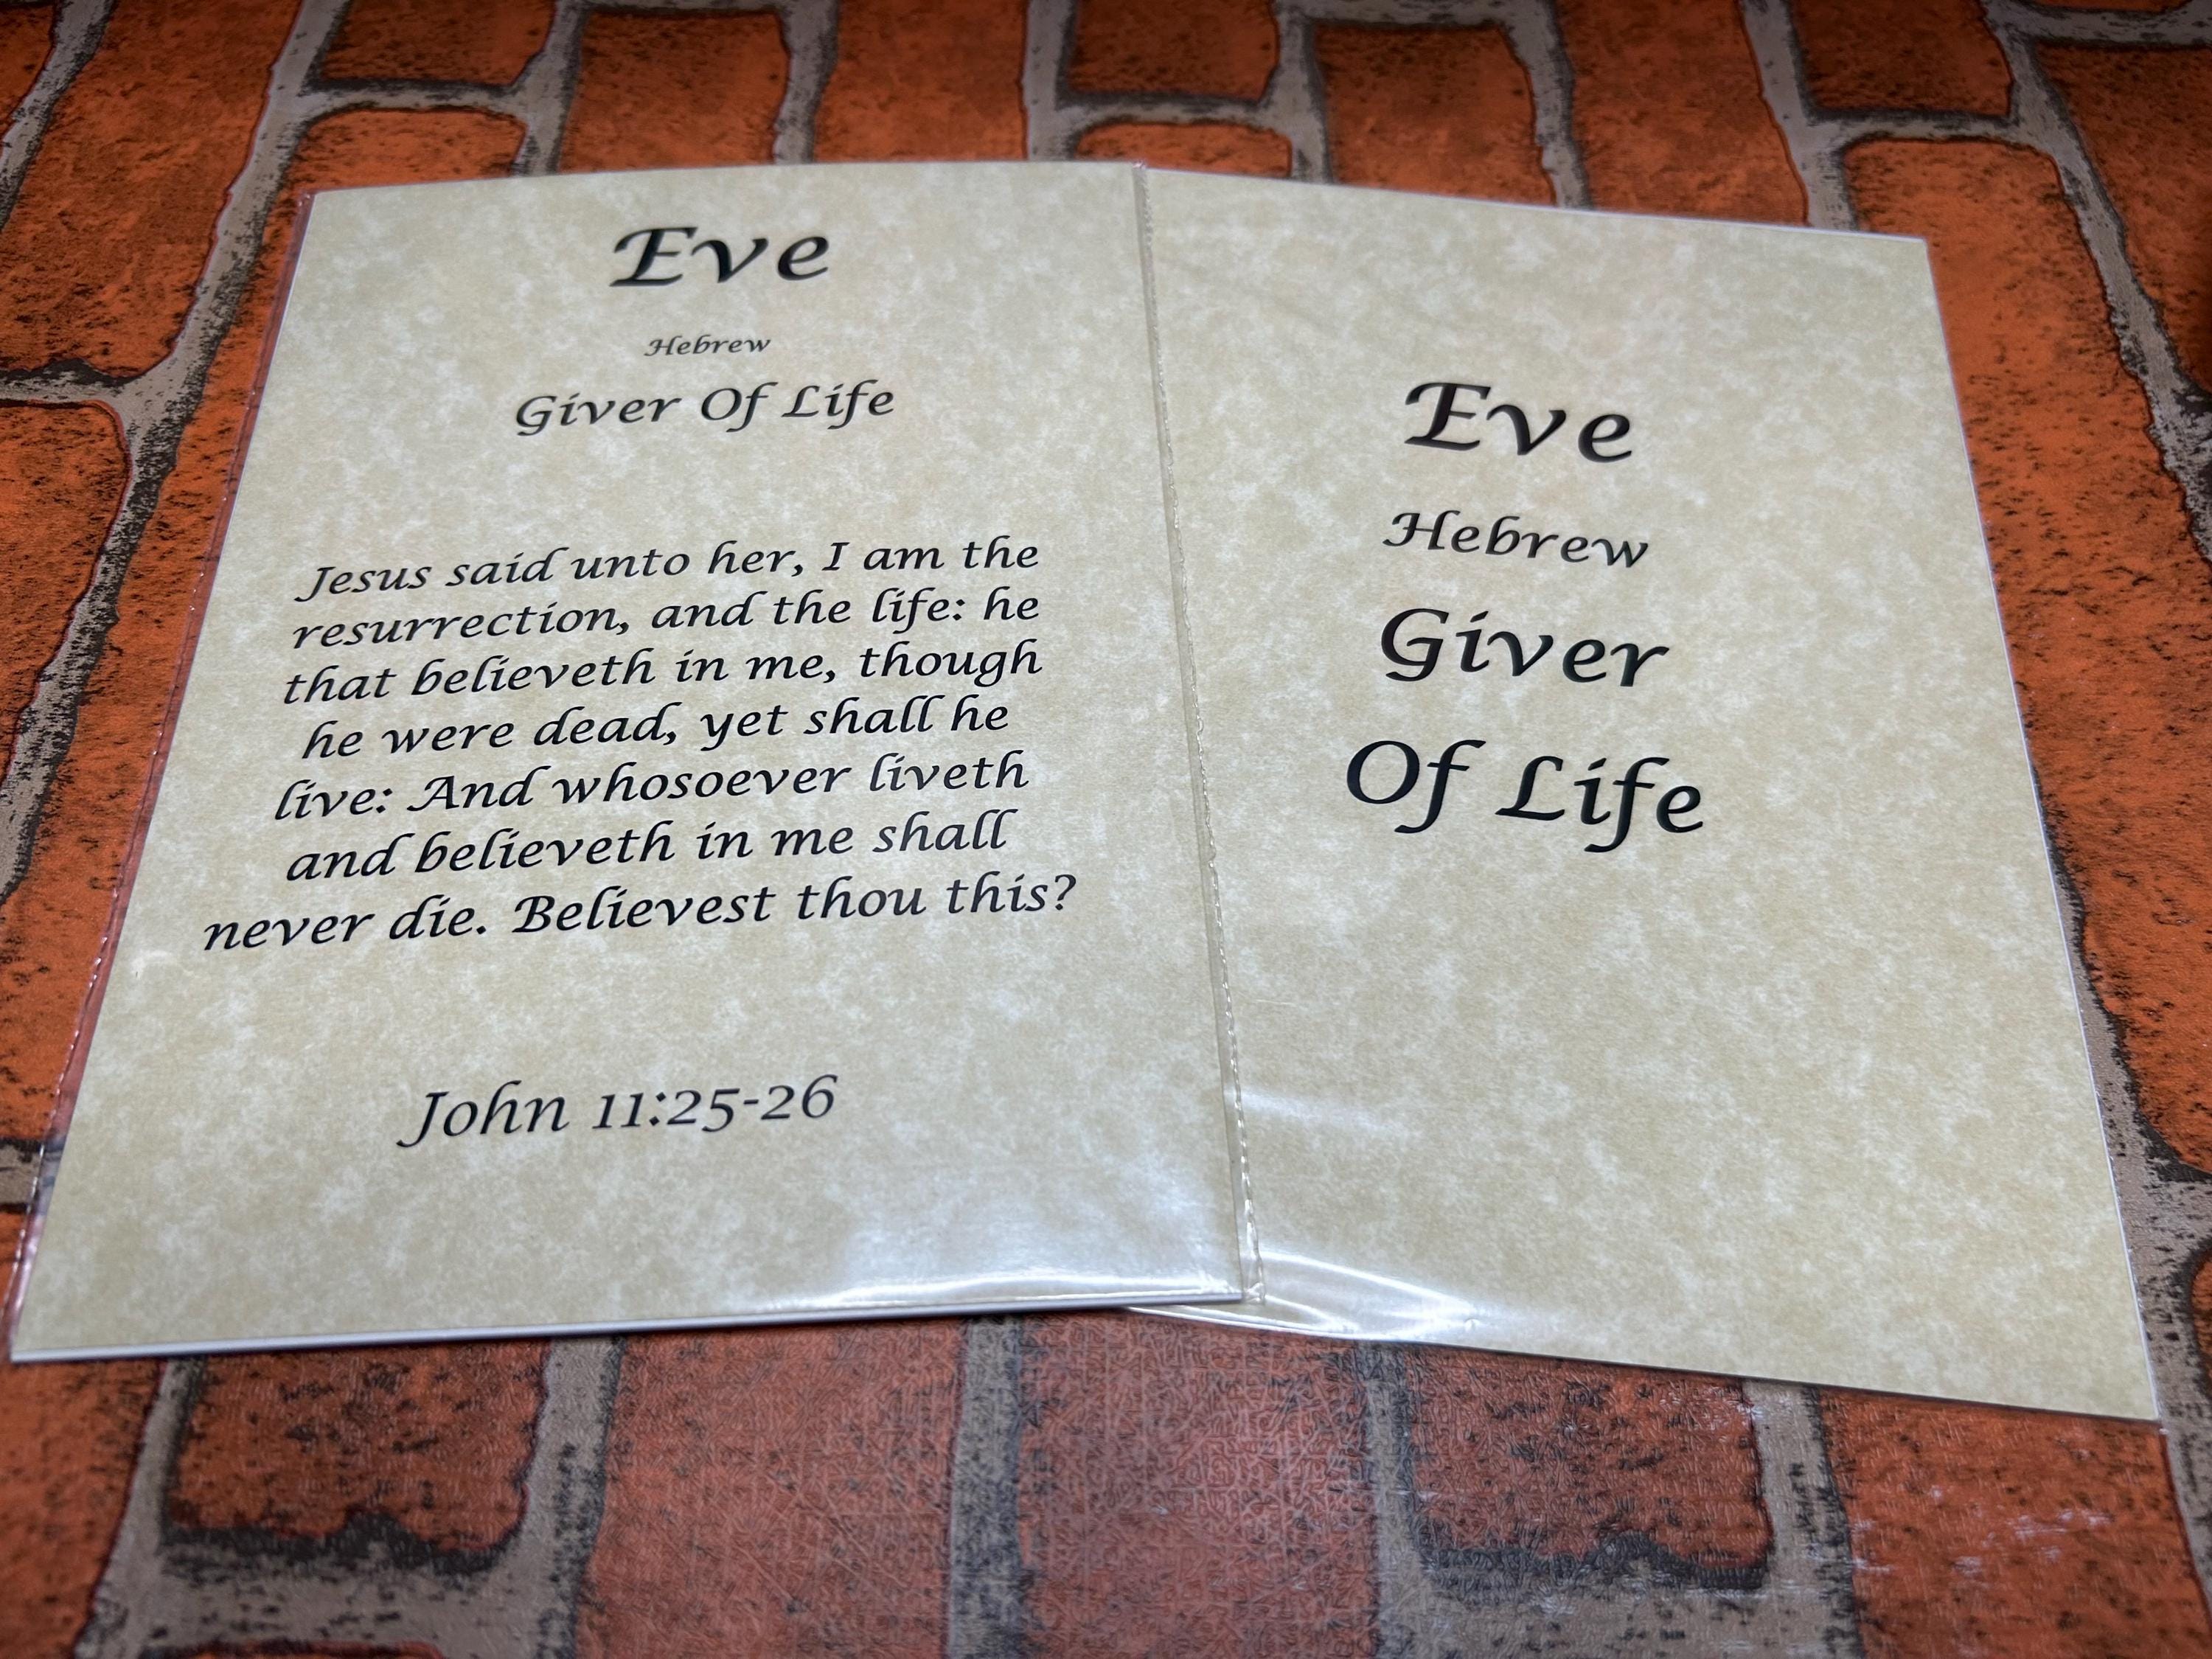 Eve
Hebrew
Giver Of Life
Jesus said unto her, I am the
resurrection, and the life: he
that believeth in me, though
he were dead, yet shall he
live: And whosoever liveth
and believeth in me shall
never die. Believest thou this?
John 11:25-26
Eve
Hebrew
Giver
Of Life